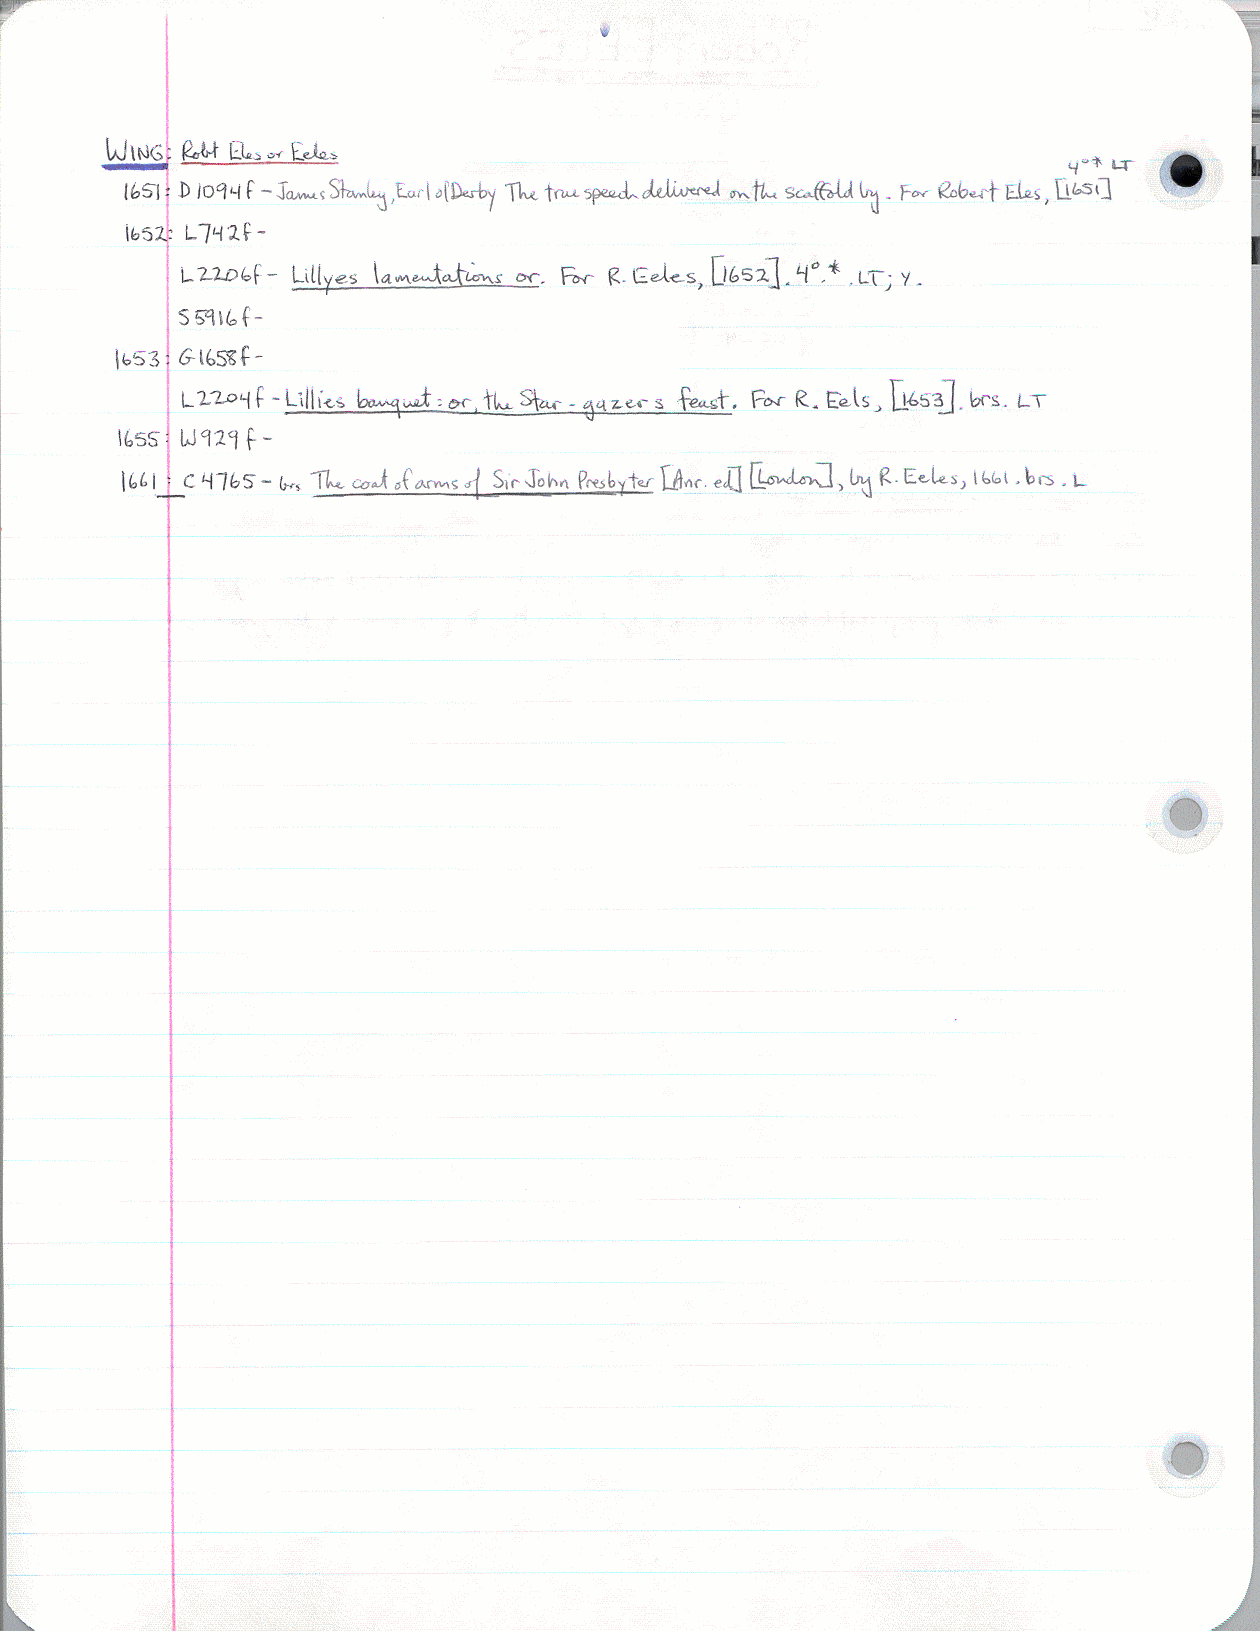 WING: Robt Eles or Eeles
4º* LT
1651: D1094f - James Stanley, Earl of Derby The true speech delivered on the scaffold by. For Robert Eles, [1651]
1652: L742f -
L2206f - Lillyes lamentations or. For R. Eeles, [1652]. 4º.* .LT; Y.
S5916f -
1653: G1658f -
L2204f - Lillies banquet: or, the Star-gazers feast. For R. Eels, [1653]. brs. LT
1655: W929f -
1661: C4765 - brs The coat of arms of Sir John Presbyter [Anr. ed] [London], by R. Eeles, 1661. brs. L